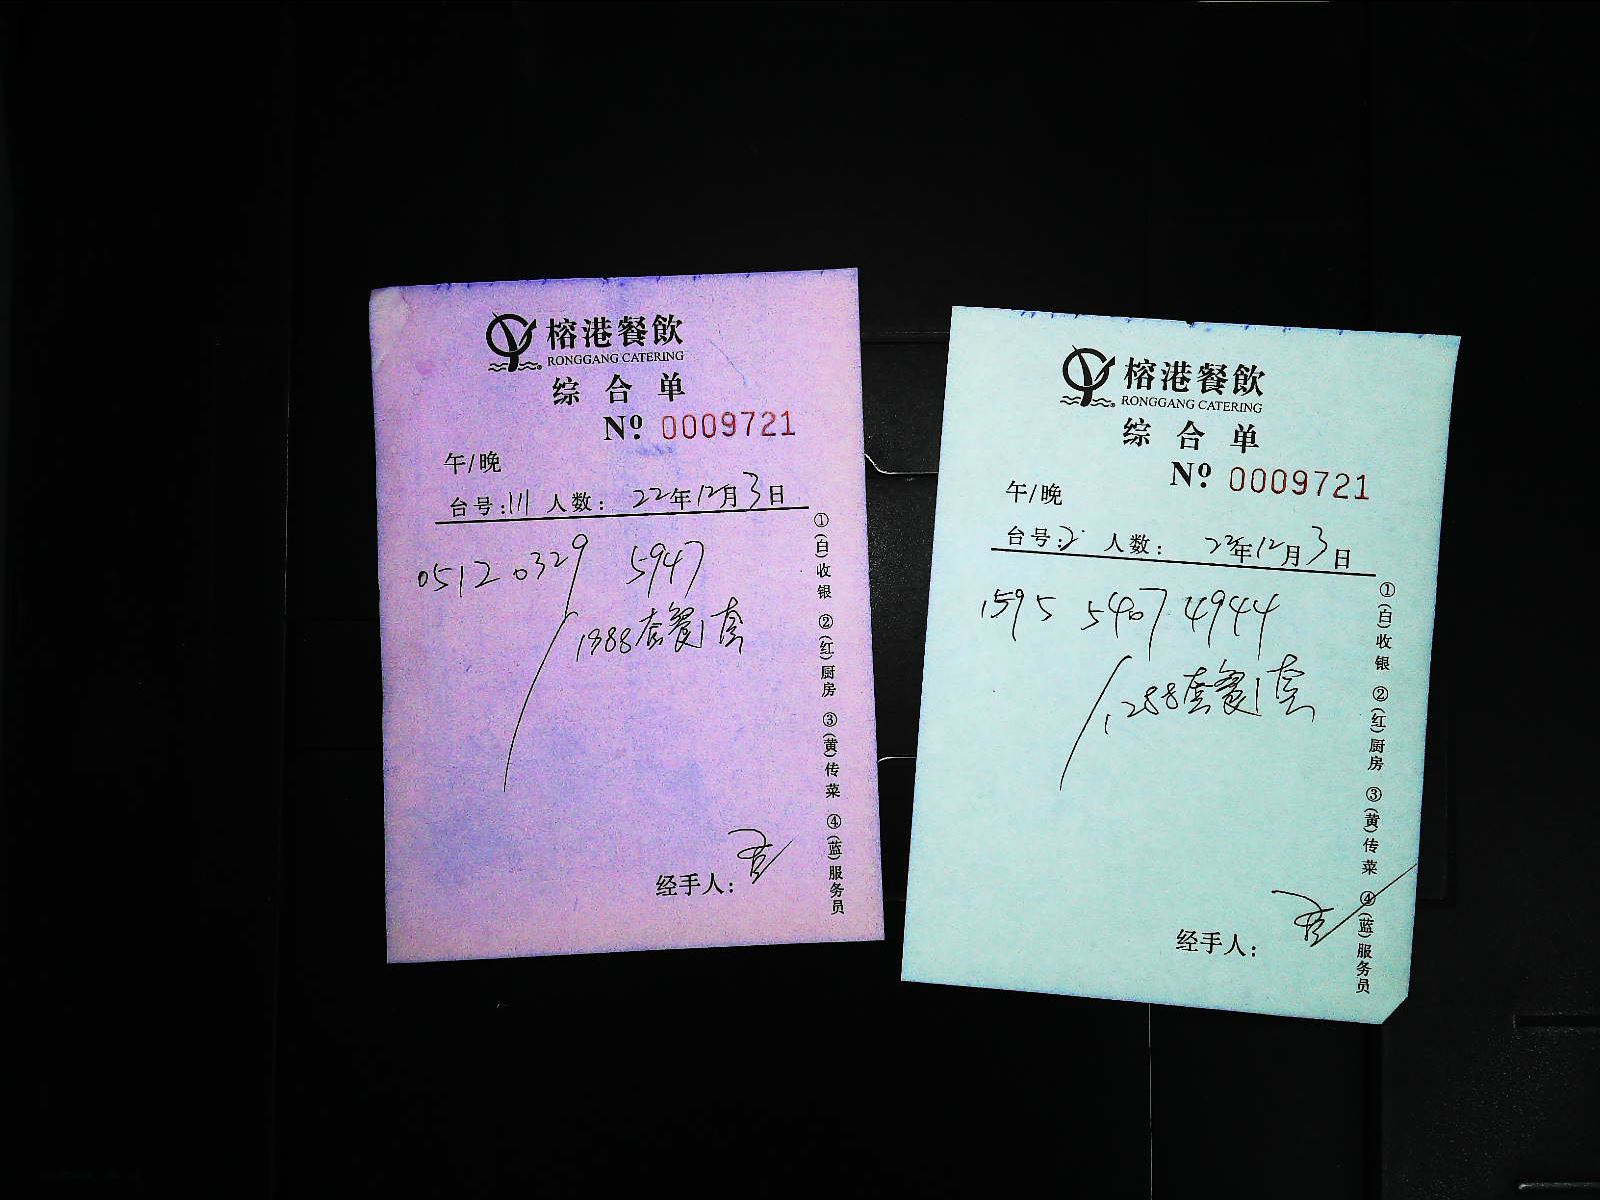 榕港餐飲
RONGGANG CATERING
综合单
Nº 0009721
午/晚
台号:111 人数: 22年12月3日
0512 0329 5947
1388套餐1套
经手人:
①(白)收银 ②(红)厨房 ③(黄)传菜 ④(蓝)服务员
榕港餐飲
RONGGANG CATERING
综合单
Nº 0009721
午/晚
台号:2 人数: 22年12月3日
1595 5407 4944
1288套餐1套
经手人:
①(白)收银 ②(红)厨房 ③(黄)传菜 ④(蓝)服务员